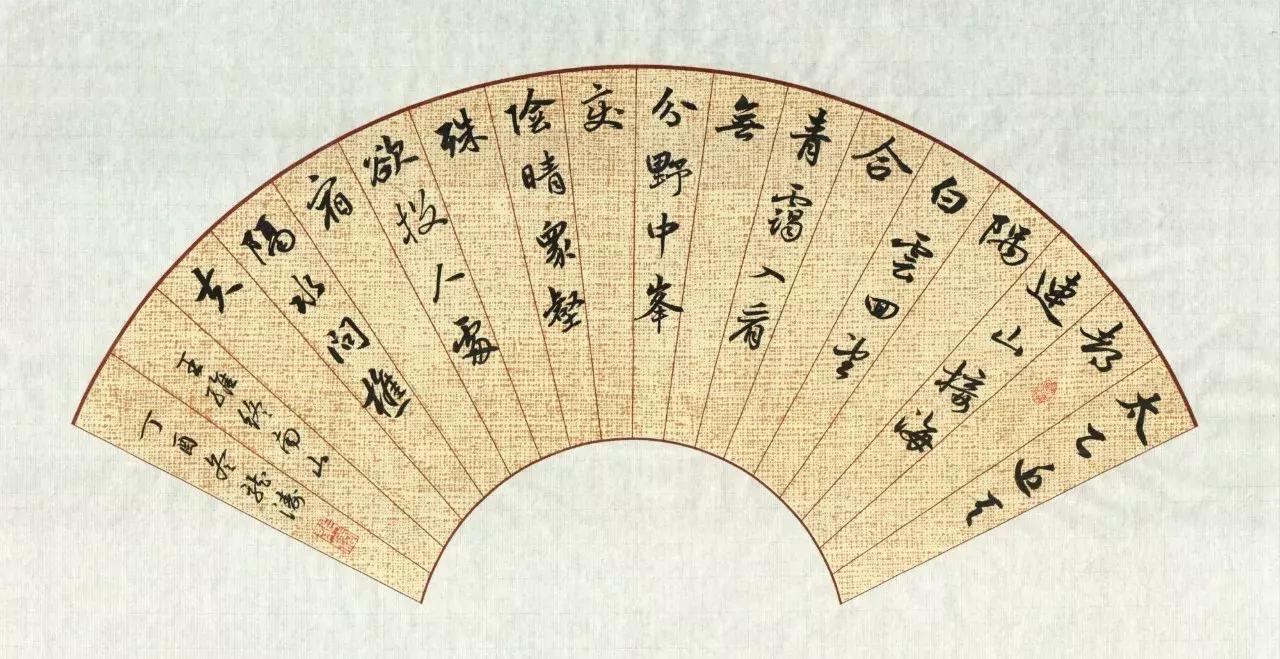 太乙近天
都
連山接海
隅
白雲回望
合
青靄入看
無
分野中峯
変
陰晴眾壑
殊
欲投人處
宿
隔水問樵
夫
王維終南山
丁酉冬龍濤